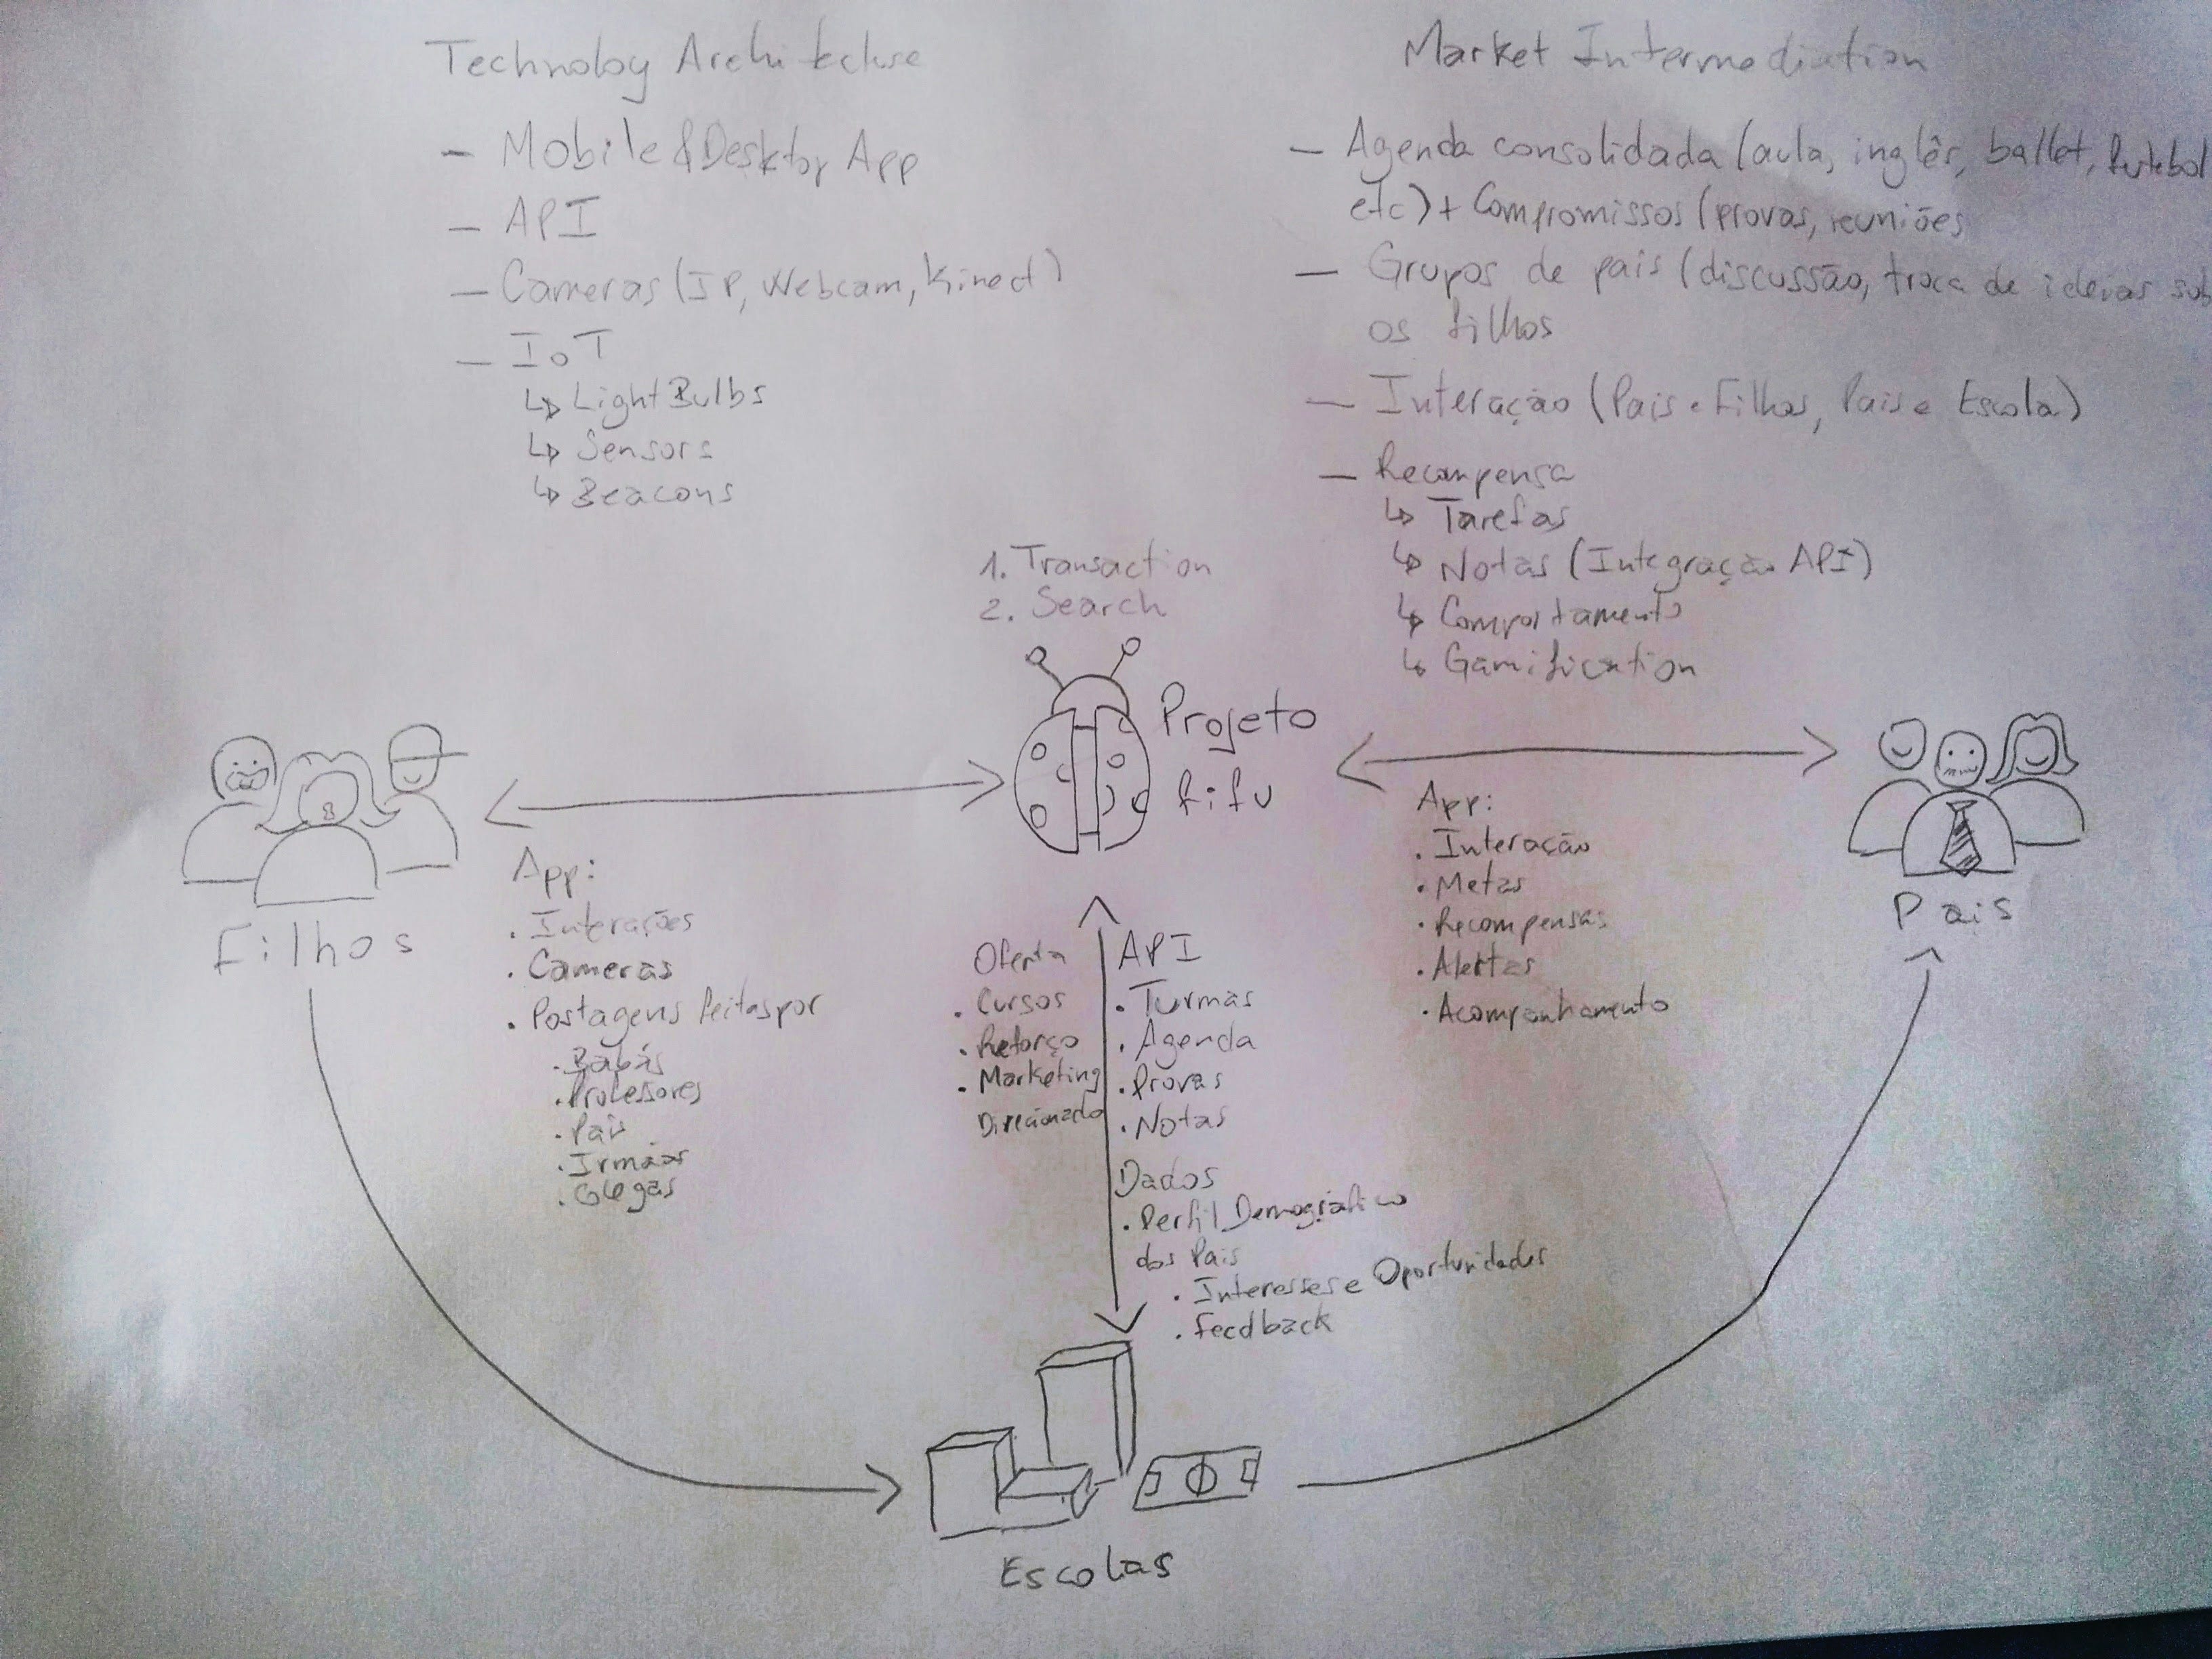 Technology Architecture
- Mobile & Desktop App
- API
- Cameras (IP, Webcam, Kinect)
- IoT
↳ Light Bulbs
↳ Sensors
↳ Beacons
Market Intermediation
- Agenda consolidada (aula, inglês, ballet, futebol
etc) + Compromissos (provas, reuniões
- Grupos de pais (discussão, troca de ideias sob
os filhos
- Interação (Pais e Filhos, Pais e Escola)
- Recompensa
↳ Tarefas
↳ Notas (Integração API)
↳ Comportamento
↳ Gamification
1. Transaction
2. Search
Projeto
fifu
Filhos
App:
. Interações
. Cameras
. Postagens feitas por
. Babás
. Professores
. Pais
. Irmãos
. Colegas
Oferta
. Cursos
. Reforço
. Marketing
Direcionado
API
. Turmas
. Agenda
. Provas
. Notas
Dados
. Perfil Demográfico
dos Pais
. Interesses e Oportunidades
. Feedback
App:
. Interação
. Metas
. Recompensas
. Alertas
. Acompanhamento
Pais
Escolas